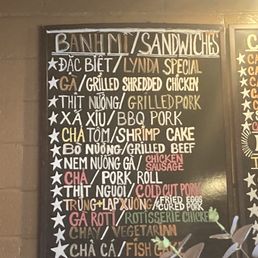 BÁNH MÌ/SANDWICHES
★ĐẶC BIỆT/LYNDA SPECIAL
★GÀ/GRILLED SHREDDED CHICKEN
★THỊT NƯỚNG/GRILLED PORK
★XÁ XÍU/BBQ PORK
★CHẢ TÔM/SHRIMP CAKE
★BÒ NƯỚNG/GRILLED BEEF
★NEM NƯỚNG GÀ/CHICKEN SAUSAGE
★CHẢ/PORK ROLL
★THỊT NGUỘI/COLD CUT PORK
★TRỨNG+LẠP XƯỞNG/FRIED EGGS CURED PORK
★GÀ ROTI/ROTISSERIE CHICKEN
★CHAY/VEGETARIAN
★CHẢ CÁ/FISH CAKE